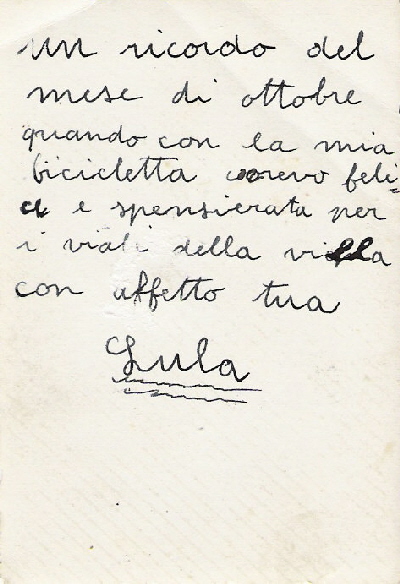 un ricordo del
mese di ottobre
quando con la mia
bicicletta correvo feli-
ce e spensierata per
i viali della villa
con affetto tua
Lula